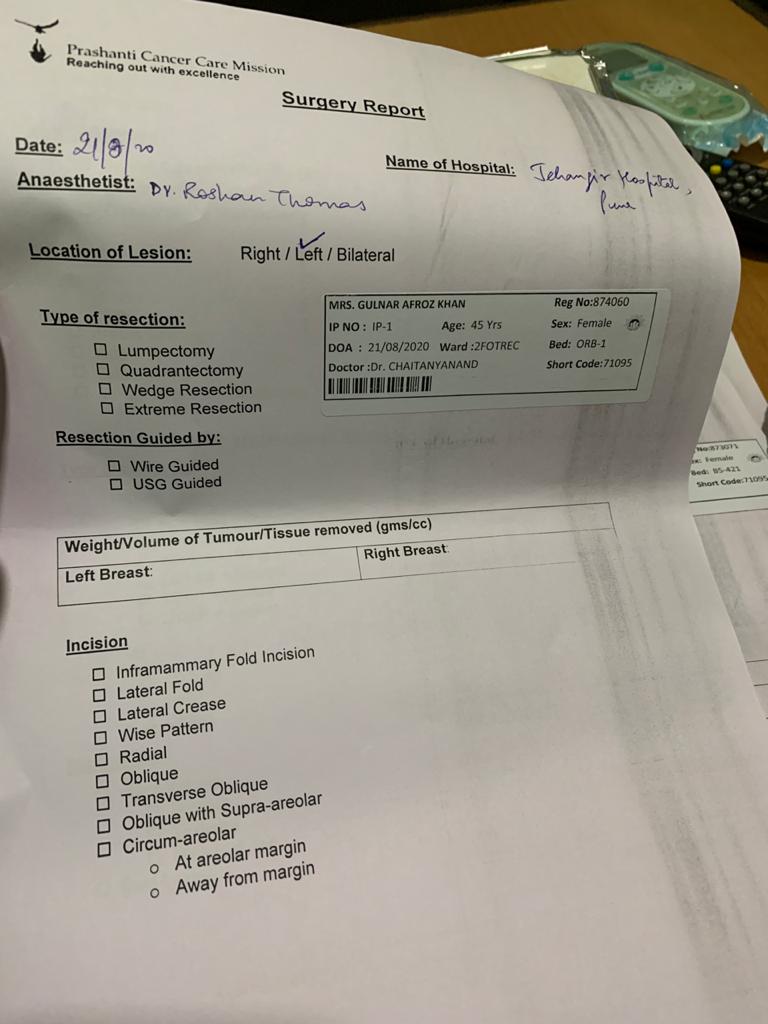 Prashanti Cancer Care Mission
Reaching out with excellence
Surgery Report
Date: 21/8/20
Name of Hospital: Jehangir Hospital,
Pune
Anaesthetist: Dr. Roshan Thomas
Location of Lesion: Right / Left / Bilateral
MRS. GULNAR AFROZ KHAN Reg No:874060
IP NO : IP-1 Age: 45 Yrs Sex: Female
DOA : 21/08/2020 Ward :2FOTREC Bed: ORB-1
Doctor :Dr. CHAITANYANAND Short Code:71095
Type of resection:
Lumpectomy
Quadrantectomy
Wedge Resection
Extreme Resection
Resection Guided by:
Wire Guided
USG Guided
Weight/Volume of Tumour/Tissue removed (gms/cc)
Left Breast: Right Breast:
Incision
Inframammary Fold Incision
Lateral Fold
Lateral Crease
Wise Pattern
Radial
Oblique
Transverse Oblique
Oblique with Supra-areolar
Circum-areolar
At areolar margin
Away from margin
No:873071
ex: Female
Bed: BS-421
Short Code:71095